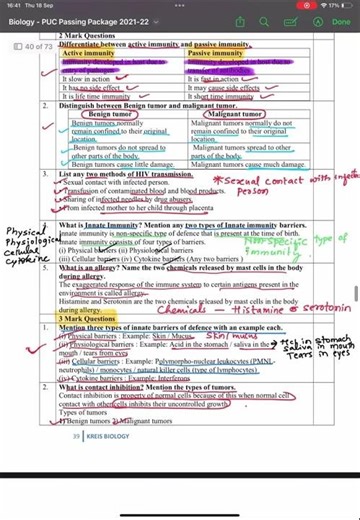 16:41 Tue 18 Sep
Biology - PUC Passing Package 2021-22
40 of 73
2 Mark Questions
Differentiate between active immunity and passive immunity.
Active immunity Passive immunity
Immunity developed in host due to Immunity developed in host due to
entry of pathogens transfer of antibodies
It slow in action It is fast in action
It has no side effect It may cause side effects
It is life time immunity It short time immunity
2. Distinguish between Benign tumor and malignant tumor.
Benign tumor Malignant tumor
Benign tumors normally Malignant tumors normally do not
remain confined to their original remain confined to their original
location. location.
Benign tumors do not spread to Malignant tumors spread to other
other parts of the body. parts of the body.
Benign tumors cause little damage. Malignant tumors cause much damage.
3. List any two methods of HIV transmission.
Sexual contact with infected person.
*Sexual contact with infected
person
Transfusion of contaminated blood and blood products.
Sharing of infected needles by drug abusers.
From infected mother to her child through placenta
Physical
Physiological
Cellular
Cytokine
What is Innate Immunity? Mention any two types of Innate immunity barriers.
Innate immunity is non-specific type of defence that is present at the time of birth.
Innate immunity consists of four types of barriers.
(i) Physical barriers (ii) Physiological barriers
(iii) Cellular barriers (iv) Cytokine barriers (Any two barriers )
Non-specific type of
immunity
5. What is an allergy? Name the two chemicals released by mast cells in the body
during allergy.
The exaggerated response of the immune system to certain antigens present in the
environment is called allergy.
Histamine and Serotonin are the two chemicals released by mast cells in the body
during allergy.
Chemicals - Histamine & serotonin
3 Mark Questions
1. Mention three types of innate barriers of defence with an example each.
(i) Physical barriers : Example: Skin / Mucus Skin/mucus
(ii) Physiological barriers : Example: Acid in the stomach / saliva in the
mouth / tears from eyes
→ HCL in stomach
saliva in mouth
Tears in eyes
(iii) Cellular barriers : Example: Polymorpho-nuclear leukocytes (PMNL-
neutrophils) / monocytes / natural killer cells (type of lymphocytes)
(iv) Cytokine barriers : Example: Interferons
2. What is contact inhibition? Mention the types of tumors.
Contact inhibition is property of normal cells because of this when normal cell
contact with other cells inhibits their uncontrolled growth.
Types of tumors
1) Benign tumors 2) Malignant tumors
39 KREIS BIOLOGY